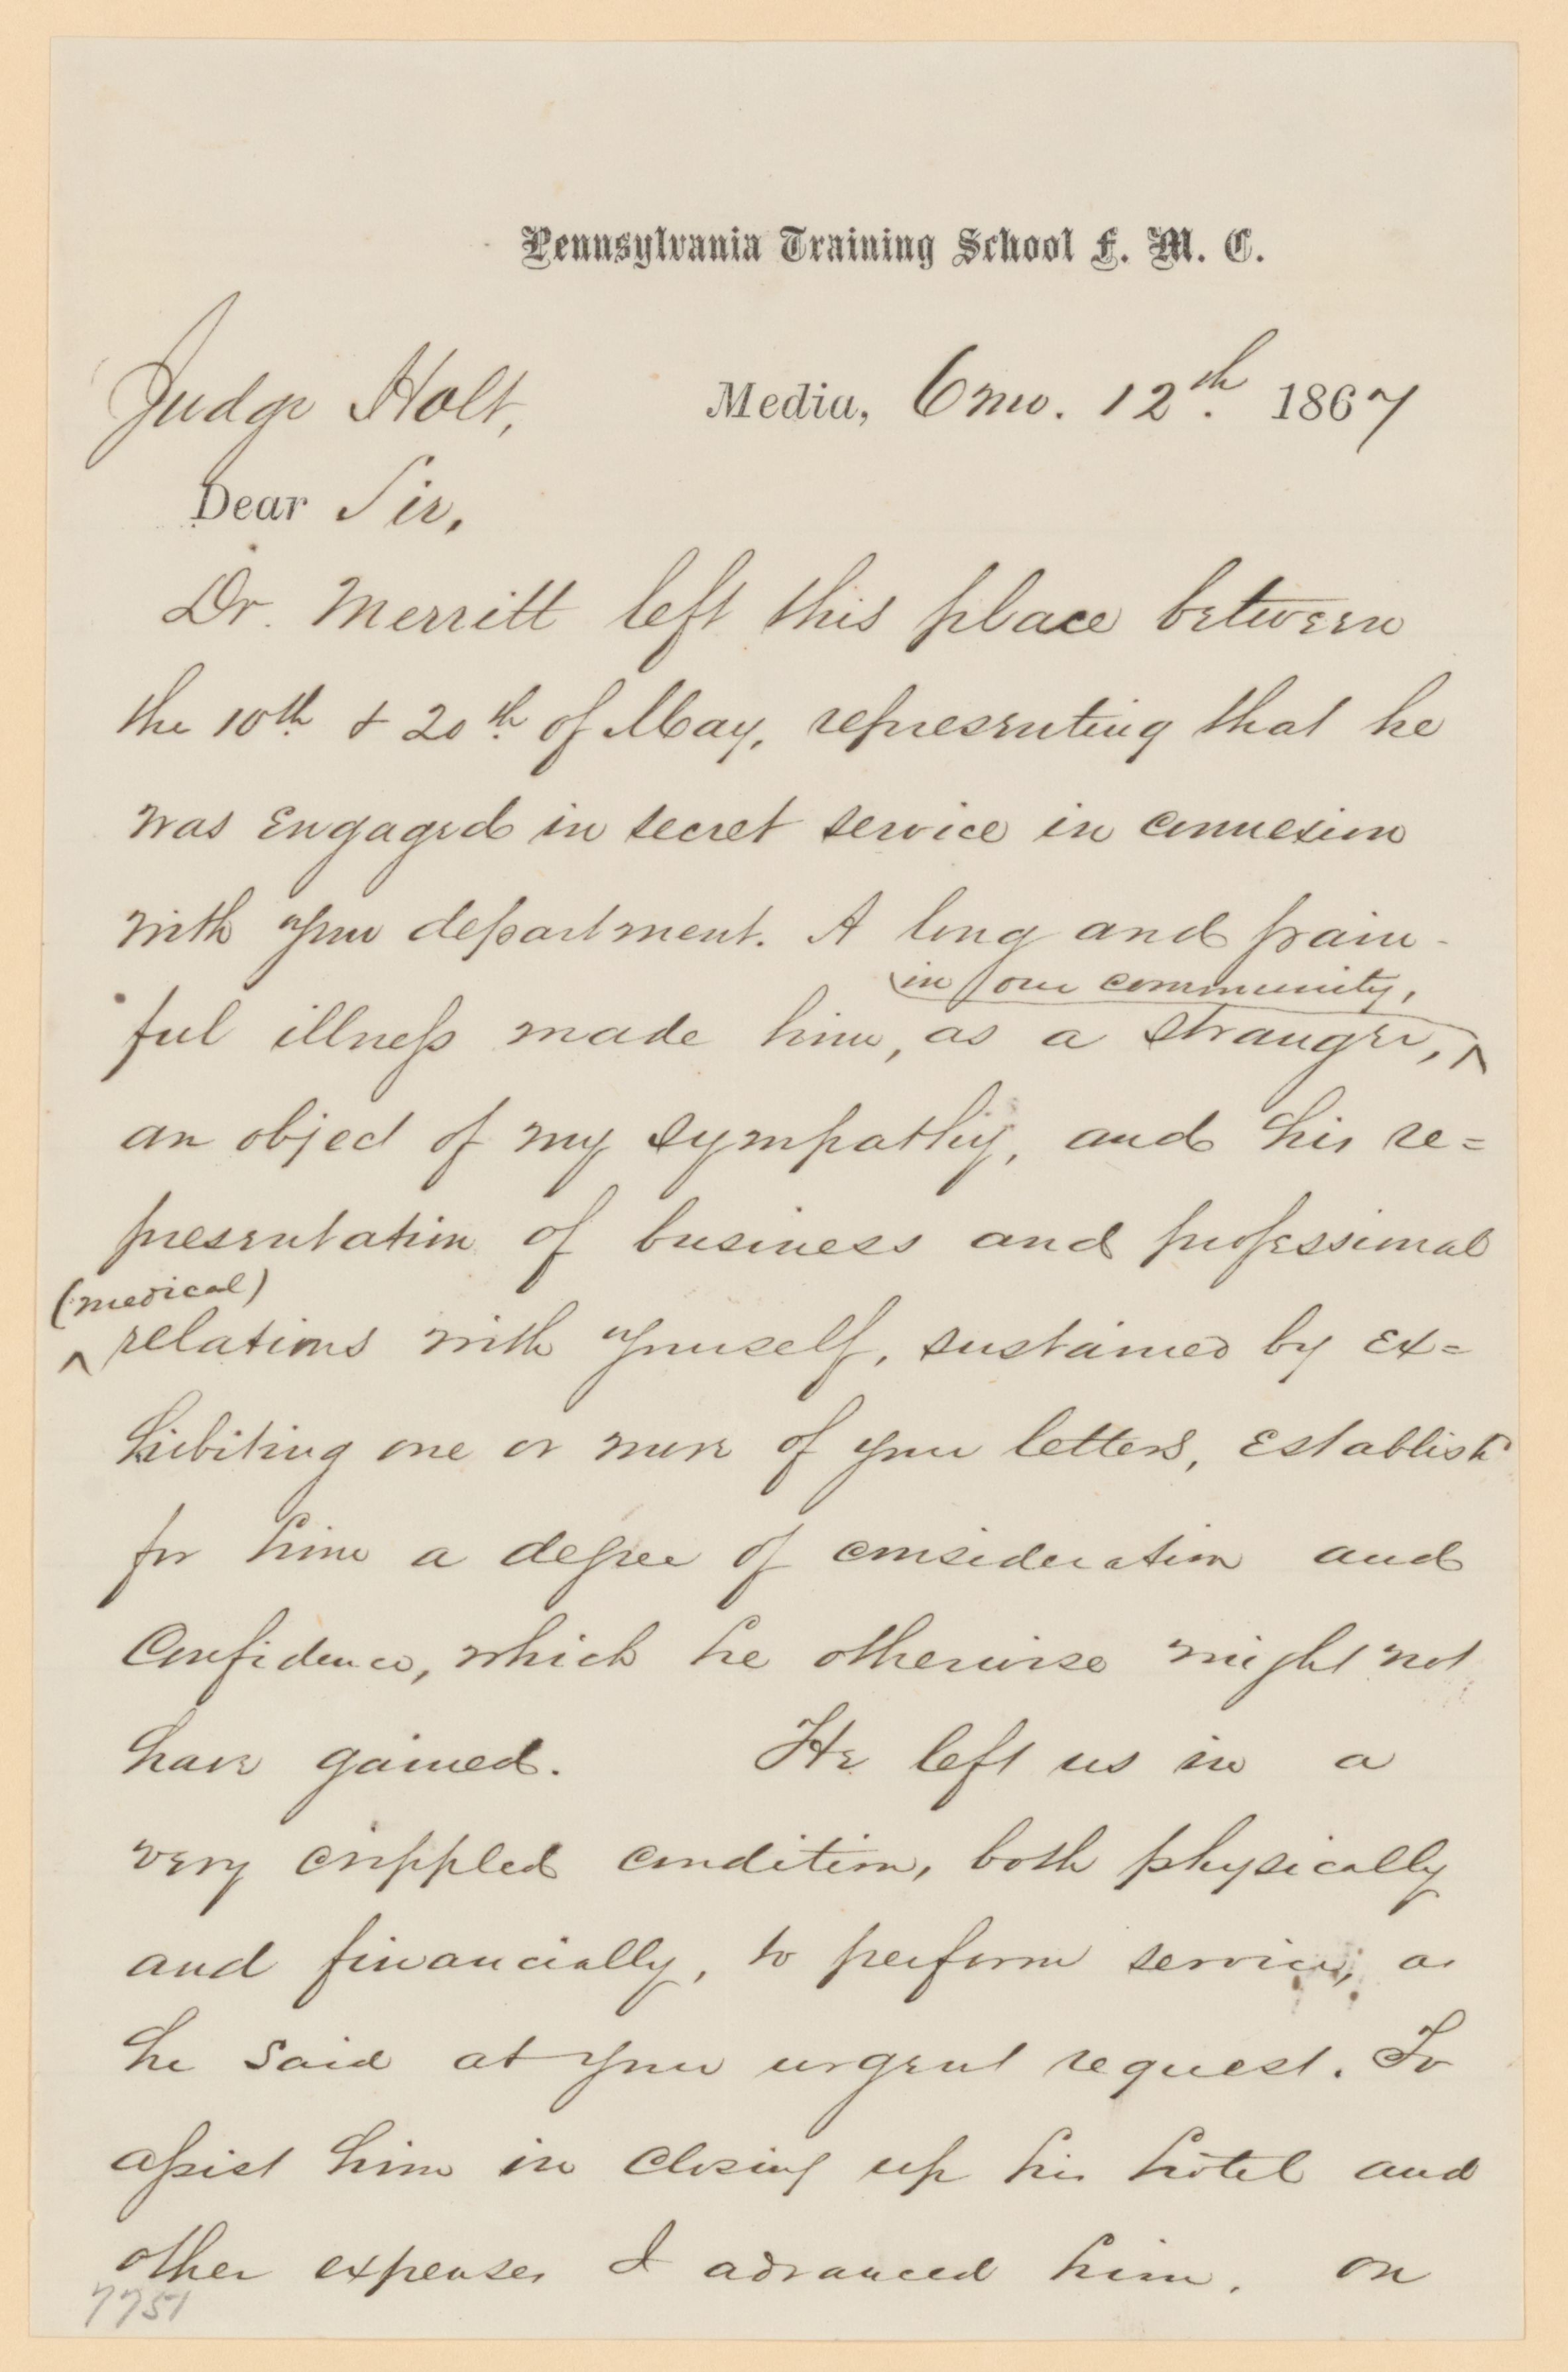 Pennsylvania Training School F. M. C.
Judge Holt,
Media, 6 mo. 12th. 1867
Dear Sir,
Dr. Merritt left this place between
the 10th. & 20th. of May, representing that he
was engaged in secret service in connexion
with your department. A long and pain-
in our community,
ful illness made him, as a stranger, ^
an object of my sympathy, and his re=
presentation of business and professional
(medical)
^ relations with yourself, sustained by ex=
hibiting one or more of your letters, establish
for him a degree of consideration and
Confidence, which he otherwise might not
have gained. He left us in a
very crippled condition, both physically
and financially, to perform service, as
he said at your urgent request. To
assist him in closing up his hotel and
other expenses I advanced him, on
7751